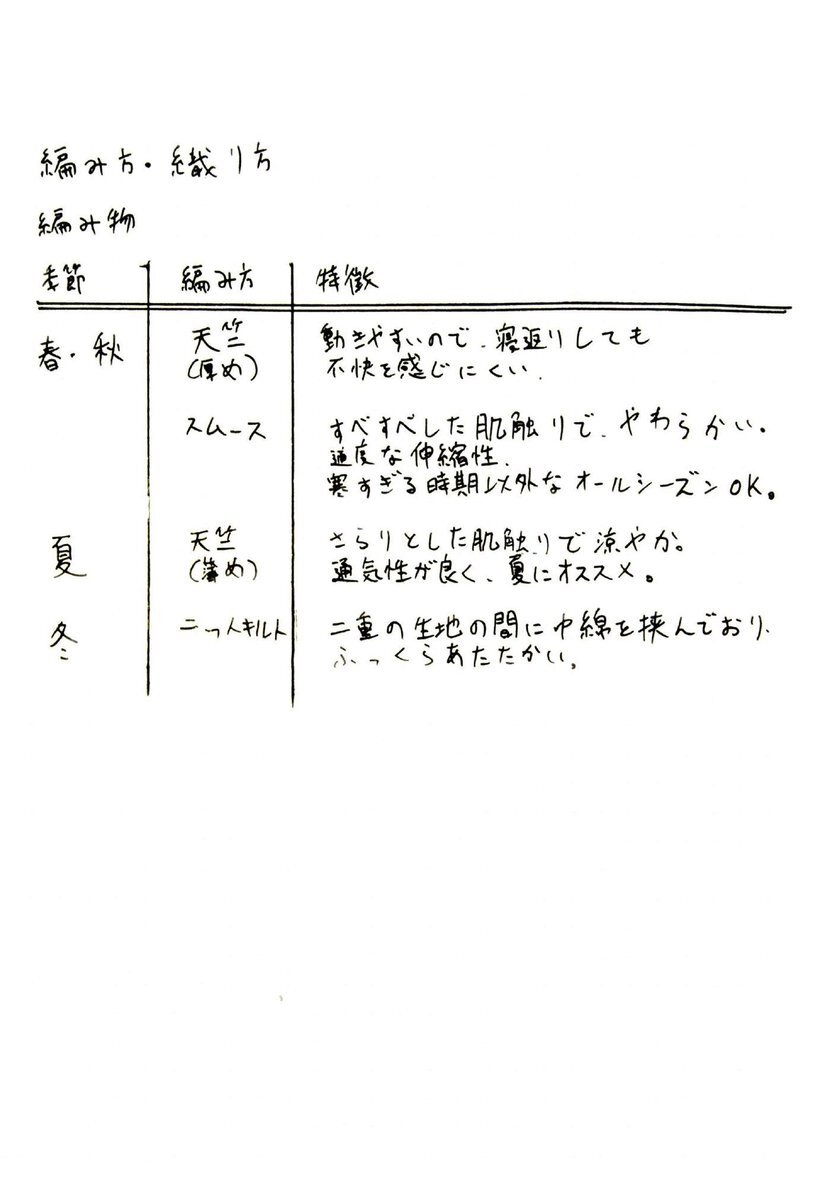 編み方・織り方
編み物
季節 編み方 特徴
春・秋 天竺 動きやすいので、寝返りしても
(厚め) 不快を感じにくい、
スムース すべすべした肌触りで、やわらかい。
適度な伸縮性、
寒すぎる時期以外なオールシーズンOK。
夏 天竺 さらりとした肌触りで涼やか。
(薄め) 通気性が良く、夏にオススメ。
冬 ニットキルト 二重の生地の間に中綿を挟んでおり、
ふっくらあたたかい。